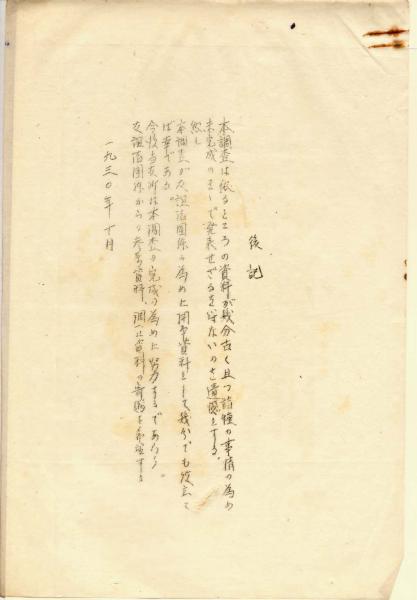 後記
本調査は依るところの資料が幾分古く且つ諸種の事情の為め
未完成のまゝで発表せざるを得ないのを遺憾とする。
然し
本調査が友誼諸団体の為めに用ゐ資料として幾分でも役立て
ば幸である。
今後当支所は本調査の完成の為めに努力するであらう。
友誼諸団体からの参考資料、調査資料の寄贈を希望する
一九三〇年十月